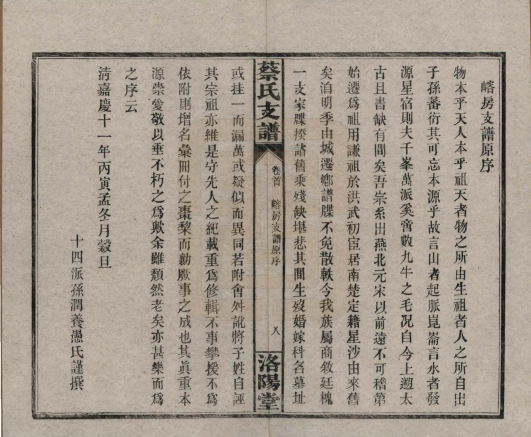 嵱房支譜原序
物本乎天人本乎祖天者物之所由生祖者人之所自出
子孫蕃衍其可忘本源乎故言山者起脈崑崙言水者發
源星宿則夫千峯萬派奚啻數九牛之毛况自今上遡太
古且書缺有間矣吾宗系出燕北元宋以前遠不可稽第
始遷爲祖用謙祖於洪武初宦居南楚定籍星沙由來舊
矣洎明季由城遷鄉譜牒不免散軼今我族屬商敘廷槐
一支家牒揆諸舊乘殘缺堪悲其間生歿婚嫁科名墓址
蔡氏支譜
卷首
嵱房支譜原序
八
洛陽堂
或挂一而漏萬或疑似而異同若附會舛訛將子姓自誣
其宗祖亦維是守先人之紀載重爲修輯不事攀援不爲
依附則增名彙冊付之棗棃而勷厥事之成也其眞重本
源崇愛敬以垂不朽之爲歟余雖頹然老矣亦甚樂而爲
之序云
清嘉慶十一年丙寅孟冬月穀旦
十四派孫潤養愚氏謹撰